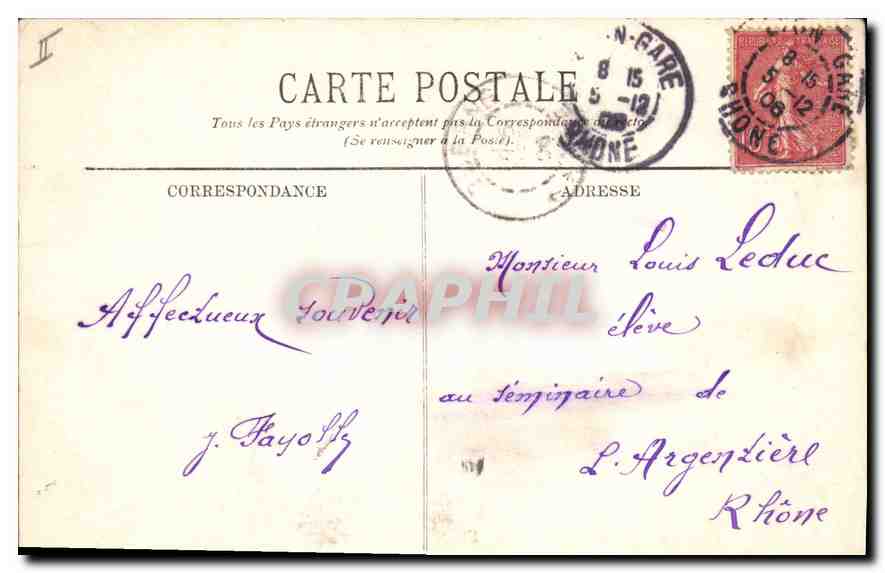 II
CARTE POSTALE
Tous les Pays étrangers n'acceptent pas la Correspondance au recto
(Se renseigner à la Poste).
CORRESPONDANCE
ADRESSE
N-GARE
8 15
5 -12
RHONE
REPUBLIQUE FRANÇAISE
LYON GARE
8 15
5 -12
06
RHONE
CPAPHIL
Monsieur Louis Leduc
élève
au séminaire de
L'Argentière
Rhône
Affectueux souvenir
J. Fayolle